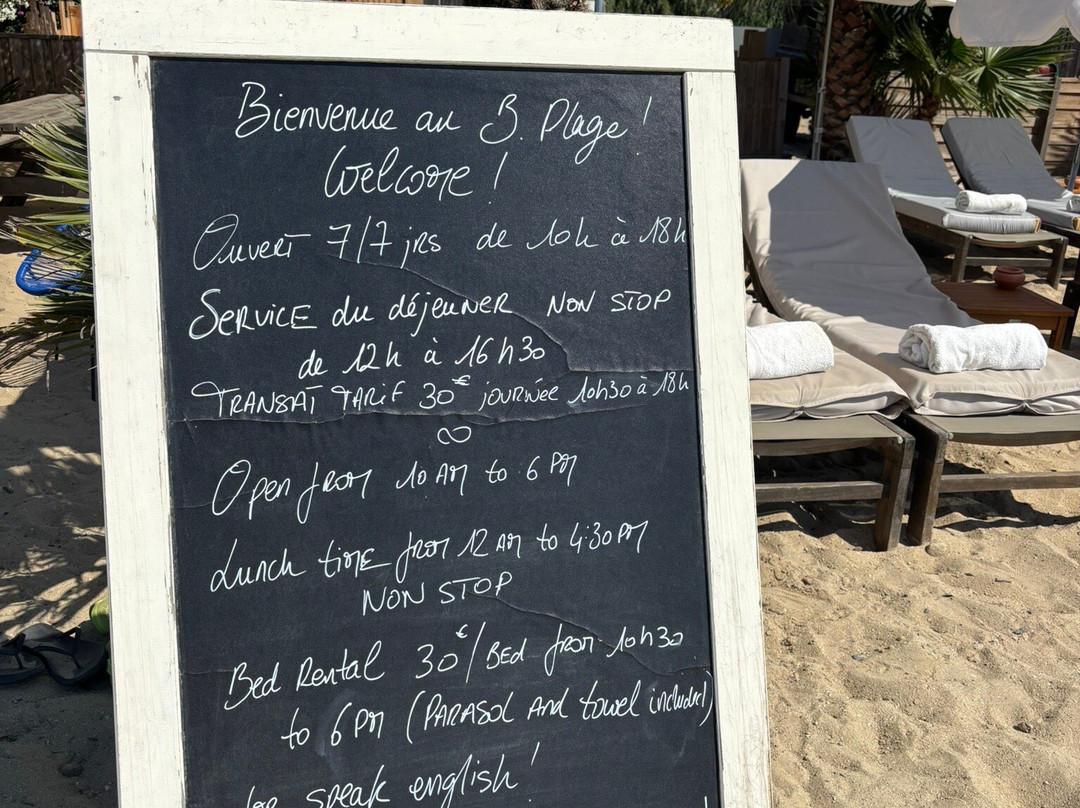 Bienvenue au B. Plage !
Welcome !
Ouvert 7/7 jrs de 10h à 18h
SERVICE du déjeuNER NON STOP
de 12h à 16h30
TRANSAT TARIF 30€ jOURNée 10h30 à 18h
∞
Open from 10 AM to 6 PM
Lunch time from 12 AM to 4:30 PM
NON STOP
Bed Rental 30€/BED from 10h30
to 6 PM (PARASOL AND towel included)
we speak english !